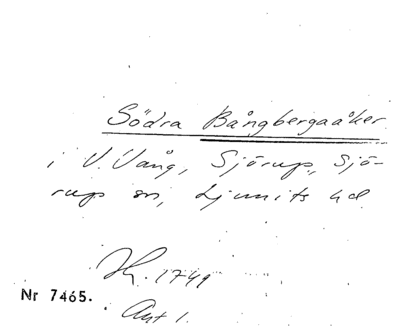 Södra Bångbergaåker
i V. Vång, Sjörup, Sjö-
rup sn, Ljunits hd
1749
Nr 7465.
Akt 1.